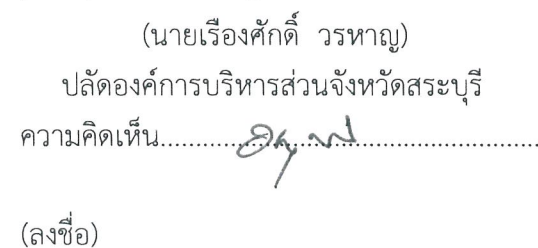 (นายเรืองศักดิ์ วรหาญ)
ปลัดองค์การบริหารส่วนจังหวัดสระบุรี
ความคิดเห็น
(ลงชื่อ)